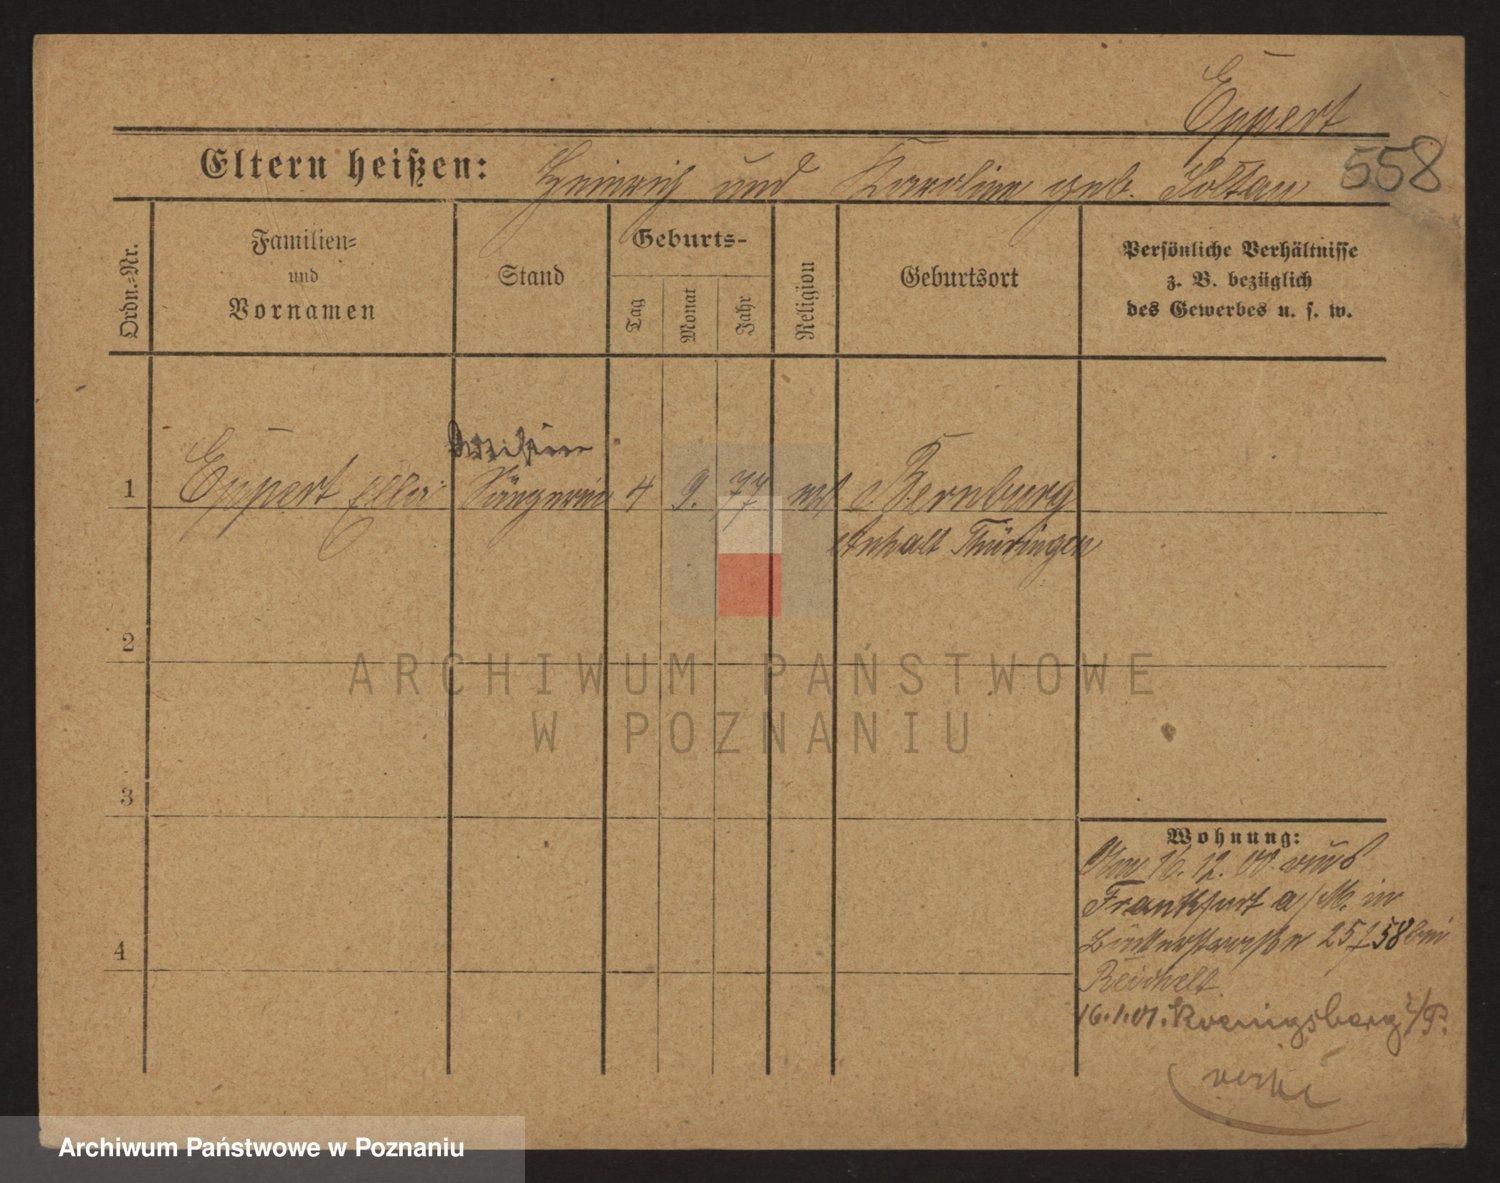 Eppert
558
Eltern heißen: Heinrich und Karoline geb. Soltau
Ordn.-Nr.
Familien-
und
Vornamen
Stand
Geburts-
Tag
Monat
Jahr
Religion
Geburtsort
Persönliche Verhältnisse
z. B. bezüglich
des Gewerbes u. s. w.
1 Eppert Ella Sängerin 4 9. 77 Bernburg
Anhalt Thüringen
2
3
4
ARCHIWUM PAŃSTWOWE
W POZNANIU
Wohnung:
16. 12. 00. aus
Frankfurt a/M. in
25/58 bei
Reichelt
16.1.01. Koenigsberg i/P.
Archiwum Państwowe w Poznaniu